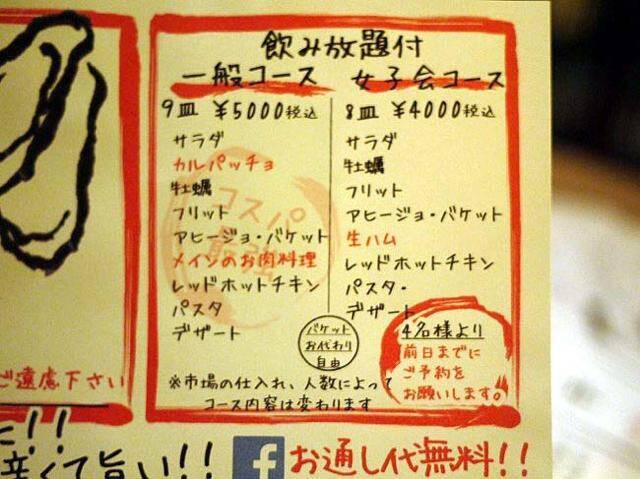 飲み放題付
一般コース
9皿 ¥5000税込
サラダ
カルパッチョ
牡蠣
フリット
アヒージョ・バケット
メインのお肉料理
レッドホットチキン
パスタ
デザート
コスパ
最強
女子会コース
8皿 ¥4000税込
サラダ
牡蠣
フリット
アヒージョ・バケット
生ハム
レッドホットチキン
パスタ・
デザート
バケット
お代わり
自由
4名様より
前日までに
ご予約を
お願いします。
※市場の仕入れ、人数によって
コース内容は変わります
ご遠慮下さい
!!
辛くて旨い!!
f お通し代無料!!